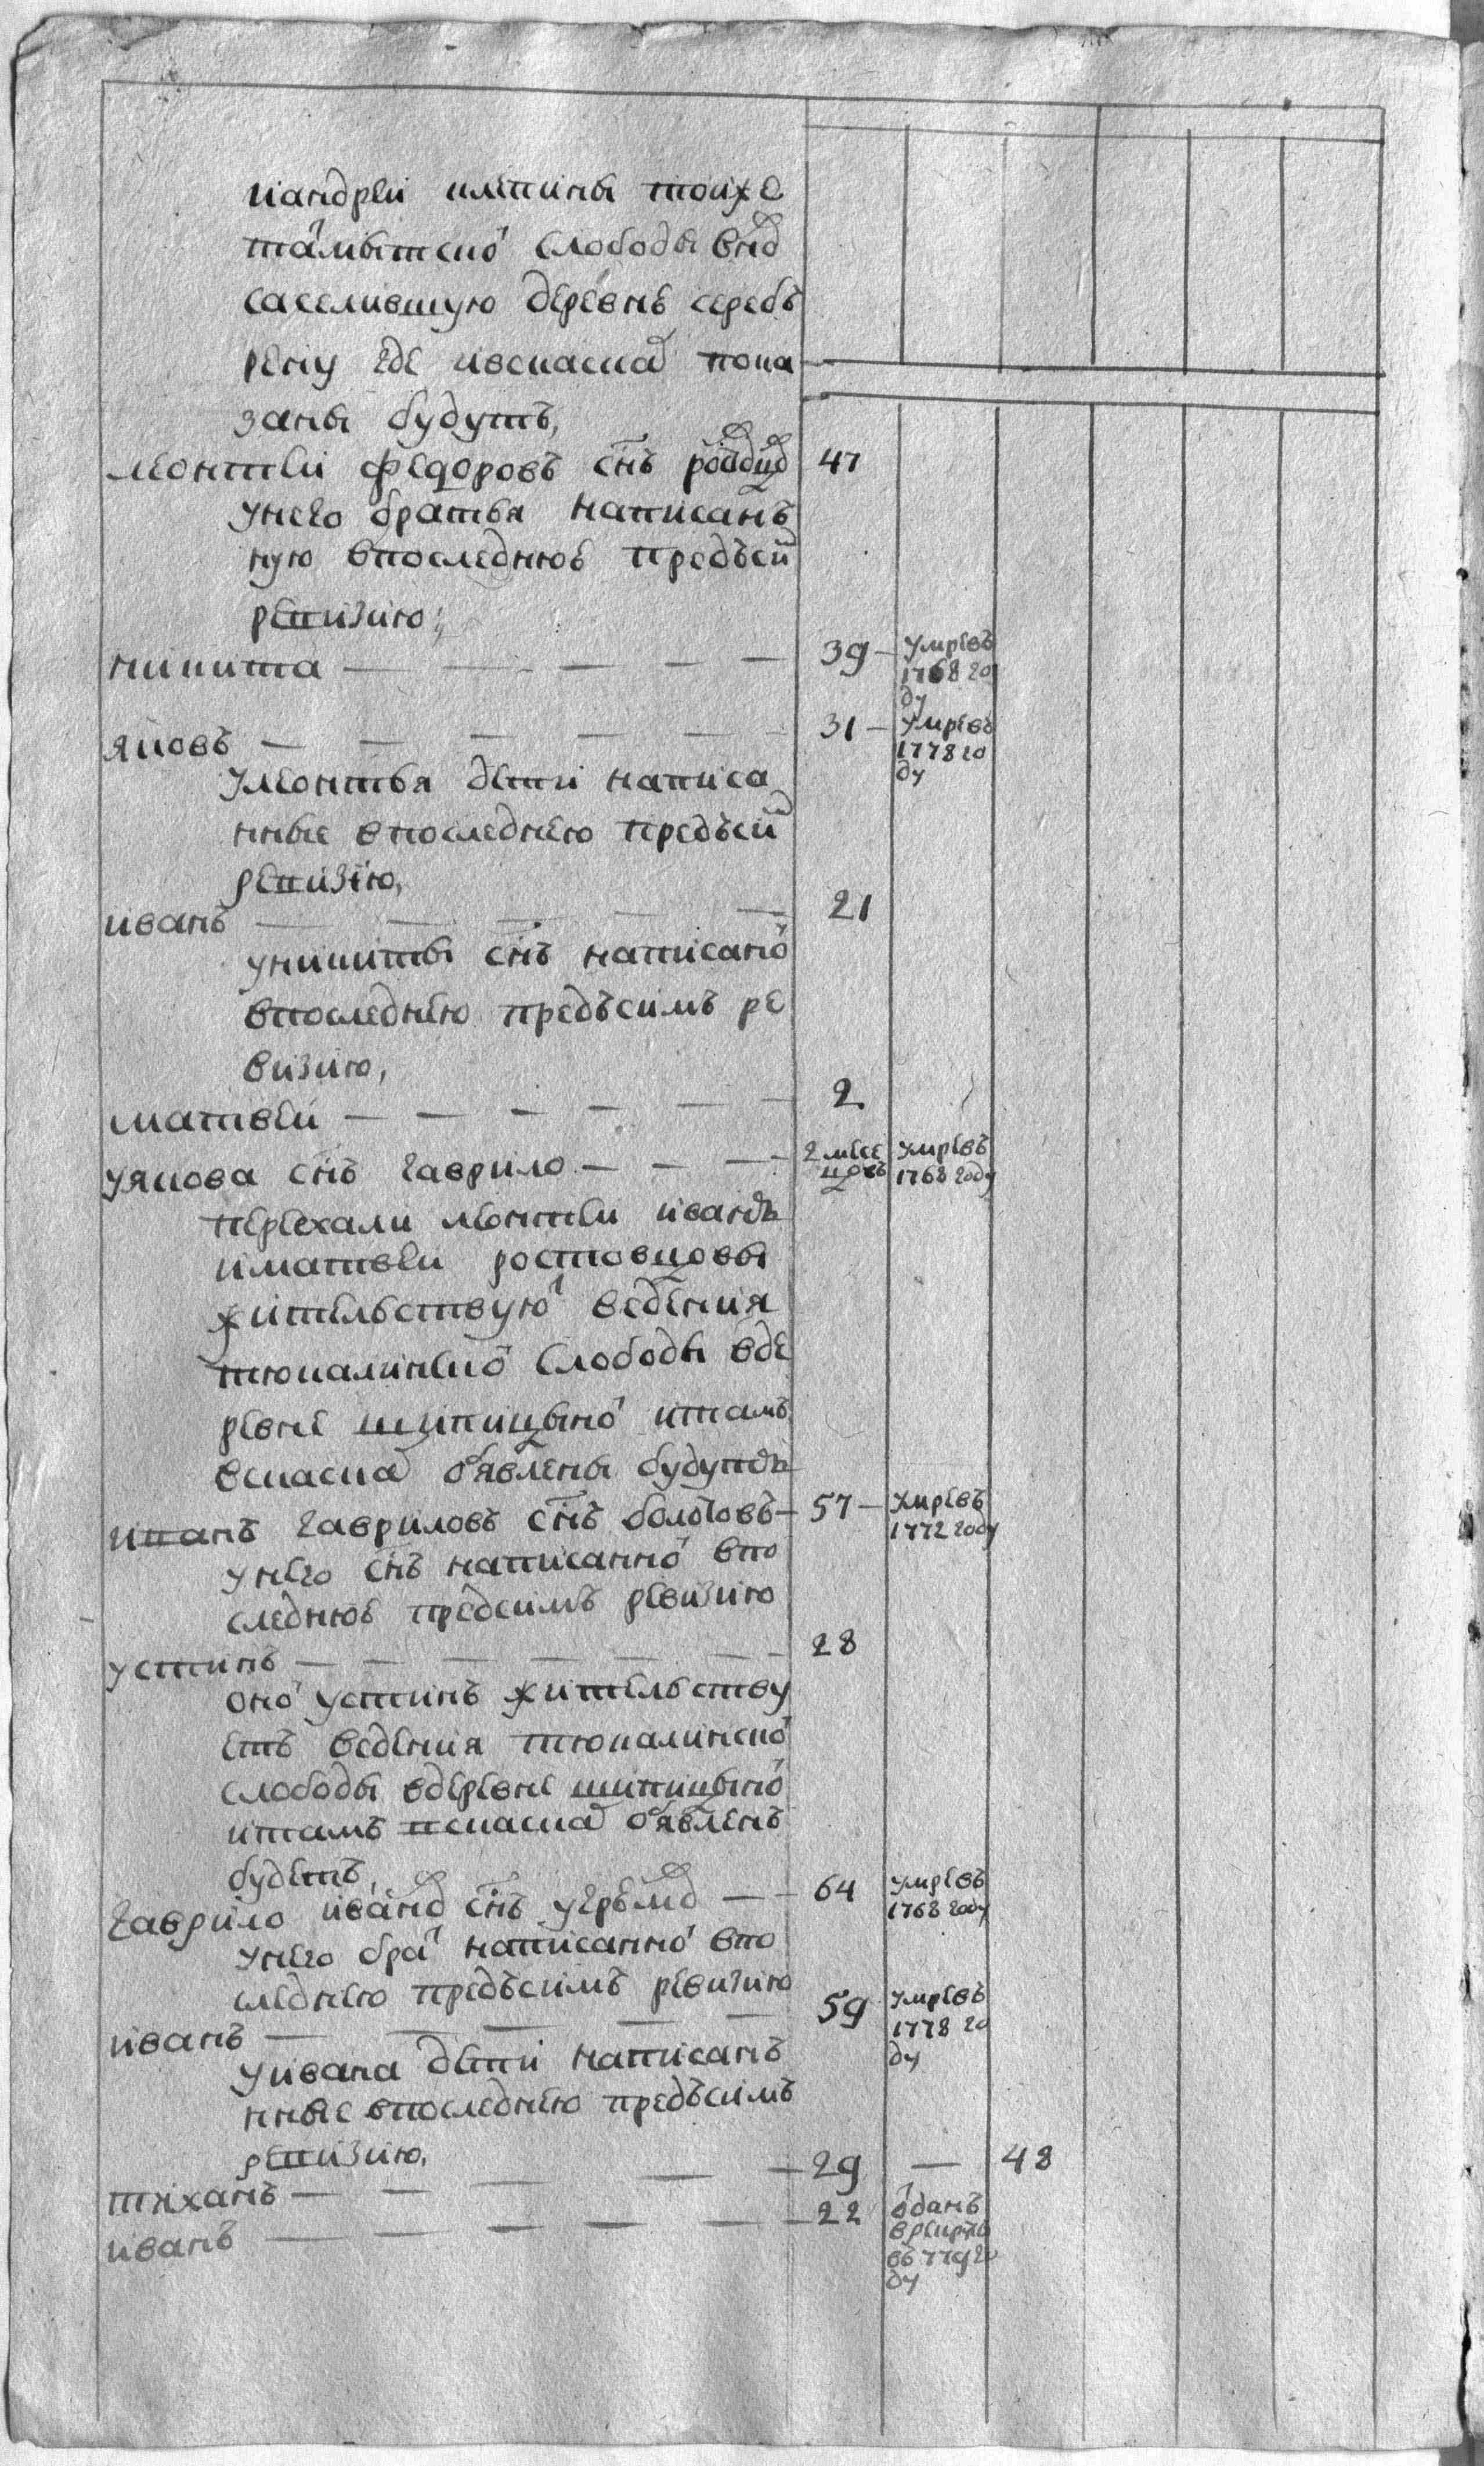 иандреи илтины тоиже
тамытскои слободы внов
заселившую деревнѣ серебъ
рену где ивсказка пока
заны будутъ,
леонтеи федоровъ снъ 47
унего братья написанъ
ную впоследнюе предъсеи
ревизию;
никита — — — — — 39 — умревъ
1768 го
ду
яковъ — — — — — 31 — умревъ
1778 го
ду
улеонтья дети написа
нные впоследнею предъсеи
ревизию,
иванъ — — — — — 21
уникиты снъ написанои
впоследнею предъсимъ ре
визию,
матвеи — — — — — — 2
уякова снъ гаврило — — — 2 месе умревъ
цовъ 1768 году
переехали леонтеи иванъ
иматвеи ростовцовы
жительствуют ведения
тюкалинскои слободы вде
ревне шипицынои итамъ
всказка обявлены будутъ
иванъ гавриловъ снъ болотовъ — 57 — умревъ
1772 году
унего снъ написаннои впо
следнюе предсимъ ревизию
устинъ — — — — — — 28
онои устинъ жительству
етъ ведения тюкалинскои
слободы вдеревне шипицынои
итамъ всказка обявленъ
будетъ,
гаврило иванов снъ — — 64 умревъ
1768 году
унего брат написаннои впо
следнею предъсимъ ревизию
иванъ — — — — — 59 умревъ
1778 го
ду
уивана дети написанъ
нные впоследнею предъсимъ
ревизию,
тиханъ — — — — — 29 — 48
иванъ — — — — — — 22 отданъ
врекруты
въ 779 го
ду